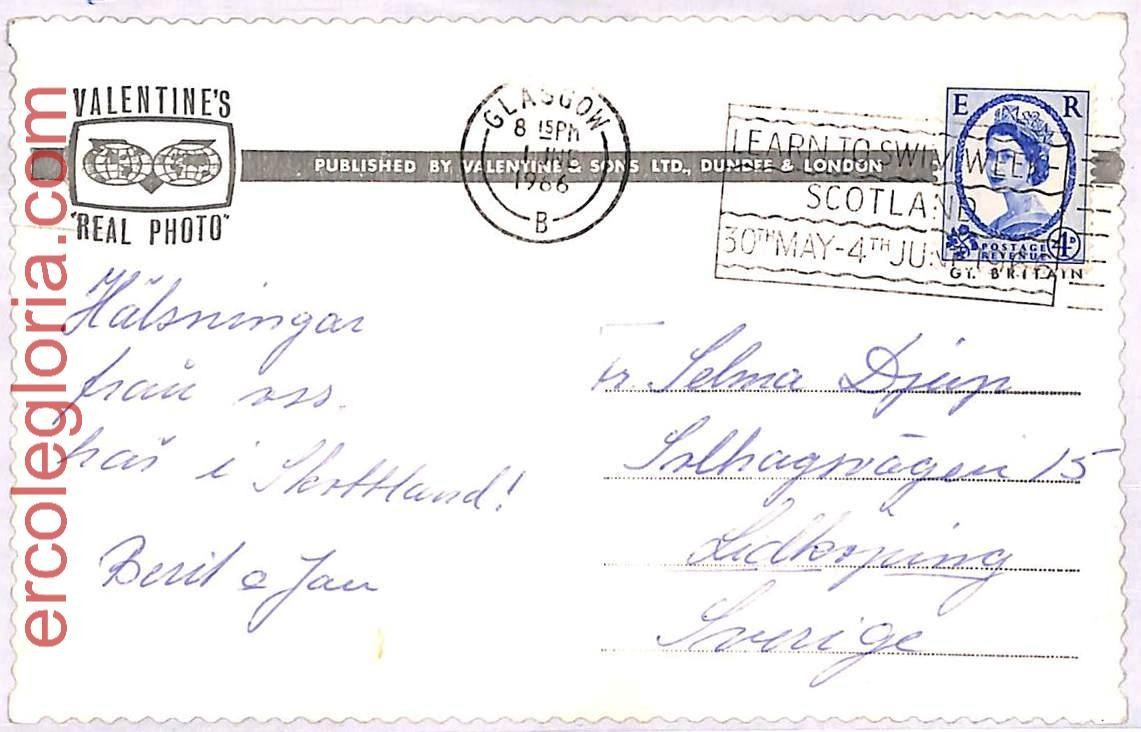 VALENTINE'S
"REAL PHOTO"
PUBLISHED BY VALENTINE & SONS LTD., DUNDEE & LONDON
GLASGOW
8 15PM
1966
B
LEARN TO SWIM WEEK
SCOTLAND
30TH MAY-4TH JUNE
E R
POSTAGE
REVENUE
4D
GT. BRITAIN
Hälsningar
från oss
här i Skottland!
Berit o Jan
Fr. Selma Djup
Solhagsvägen 15
Lidköping
Sverige
ercolegloria.com